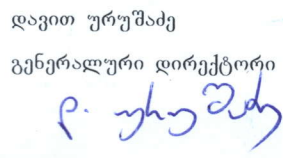 დავით ურუშაძე
გენერალური დირექტორი
დ. ურუშაძე